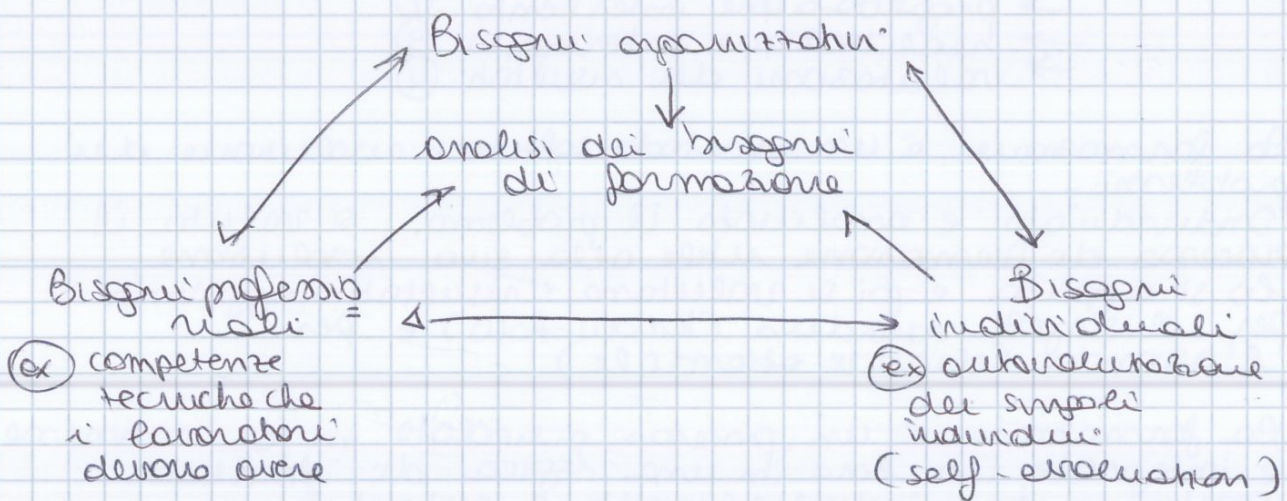 Bisogni organizzativi
analisi dei bisogni
di formazione
Bisogni professio
nali
ex competenze
tecniche che
i lavoratori
devono avere
Bisogni
individuali
ex autovalutazione
dei singoli
individui
(self-evaluation)